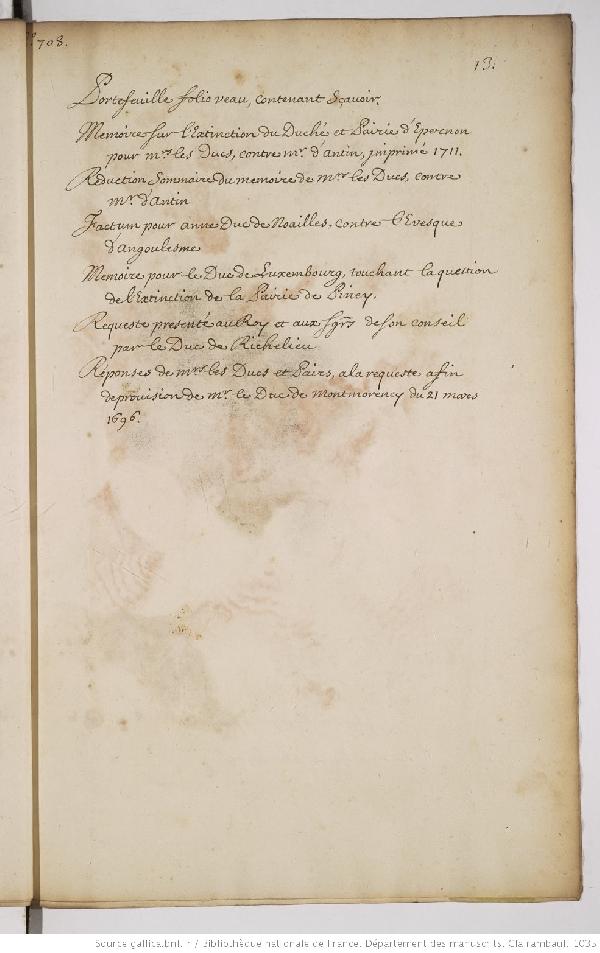 708.
13.
Portefeuille folio veau, contenant Sçavoir,
Memoire sur l'Extinction du Duché et Pairie d'Epernon
pour mrs les Ducs, contre mr. d'Antin, imprimé 1711.
Reduction Sommaire du memoire de mrs les Ducs, contre
mr. d'Antin
Factum pour anne Duc de Noailles, contre l'Evesque
d'Angoulesme
Memoire pour le Duc de Luxembourg, touchant la question
de l'Extinction de la Pairie de Piney.
Requeste presenté au Roy et aux sgrs de son conseil
par le Duc de Richelieu
Réponses de mrs les Ducs et Pairs, a la requeste affin
de provision de mr. le Duc de Montmorency du 21 mars
1696.
Source gallica.bnf.fr / Bibliothèque nationale de France. Département des manuscrits. Clairambault 1035